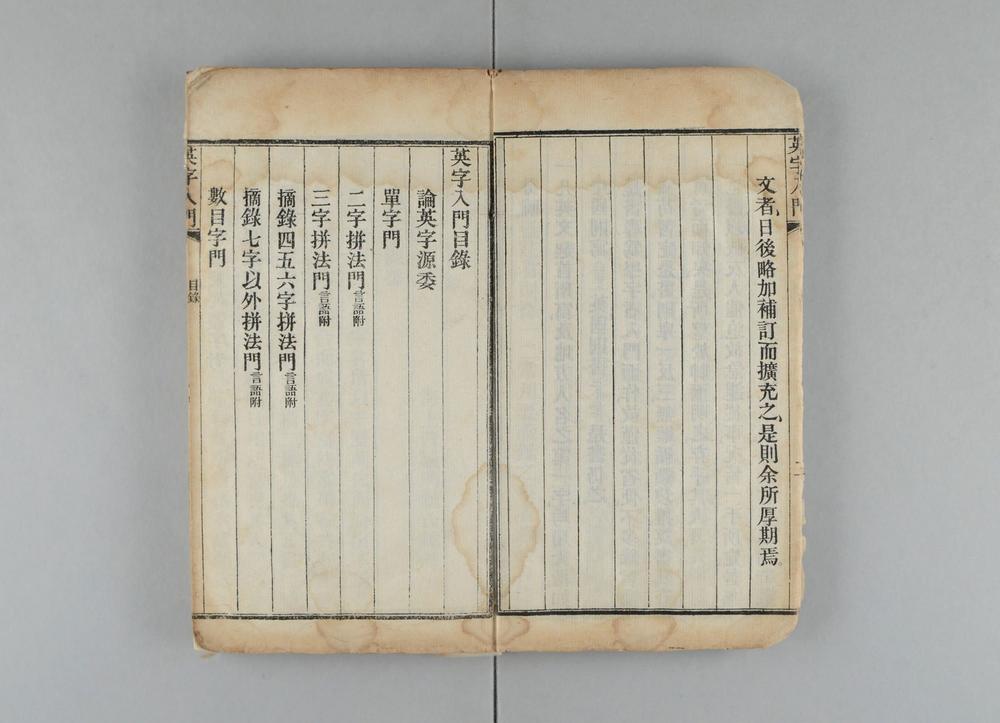 英字入門
文者、日後略加補訂而擴充之、是則余所厚期焉。
二
英字入門目錄
論英字源委
單字門
二字拼法門 言語附
三字拼法門 言語附
摘錄四五六字拼法門 言語附
摘錄七字以外拼法門 言語附
數目字門
英字入門
目錄